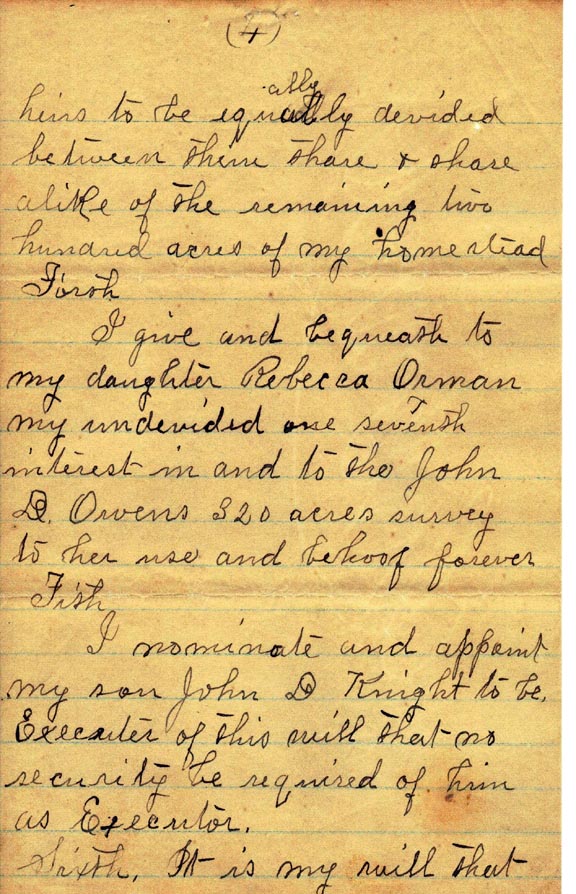 (4)
ally
heirs to be equally devided
between them share & share
alike of the remaining two
hundred acres of my homestead
Forth
I give and bequeath to
my daughter Rebecca Orman
my undevided one seventh
interest in and to the John
D. Owens 320 acres survey
to her use and behoof forever
Fith
I nominate and appoint
my son John D Knight to be.
Executer of this will that no
security be required of him
as Executor.
Sixth. It is my will that